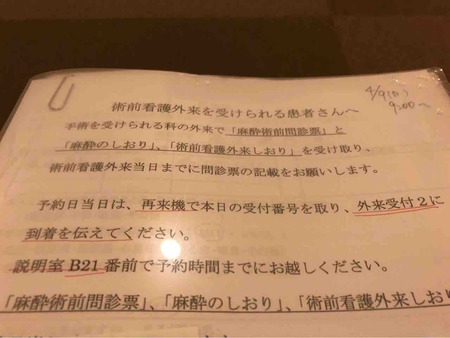 術前看護外来を受けられる患者さんへ
9:00〜
手術を受けられる科の外来で「麻酔術前問診票」と
「麻酔のしおり」、「術前看護外来しおり」を受け取り、
術前看護外来当日までに問診票の記載をお願いします。
予約日当日は、再来機で本日の受付番号を取り、外来受付2に
到着を伝えてください。
説明室 B21 番前で予約時間までにお越しください。
「麻酔術前問診票」、「麻酔のしおり」、「術前看護外来しお